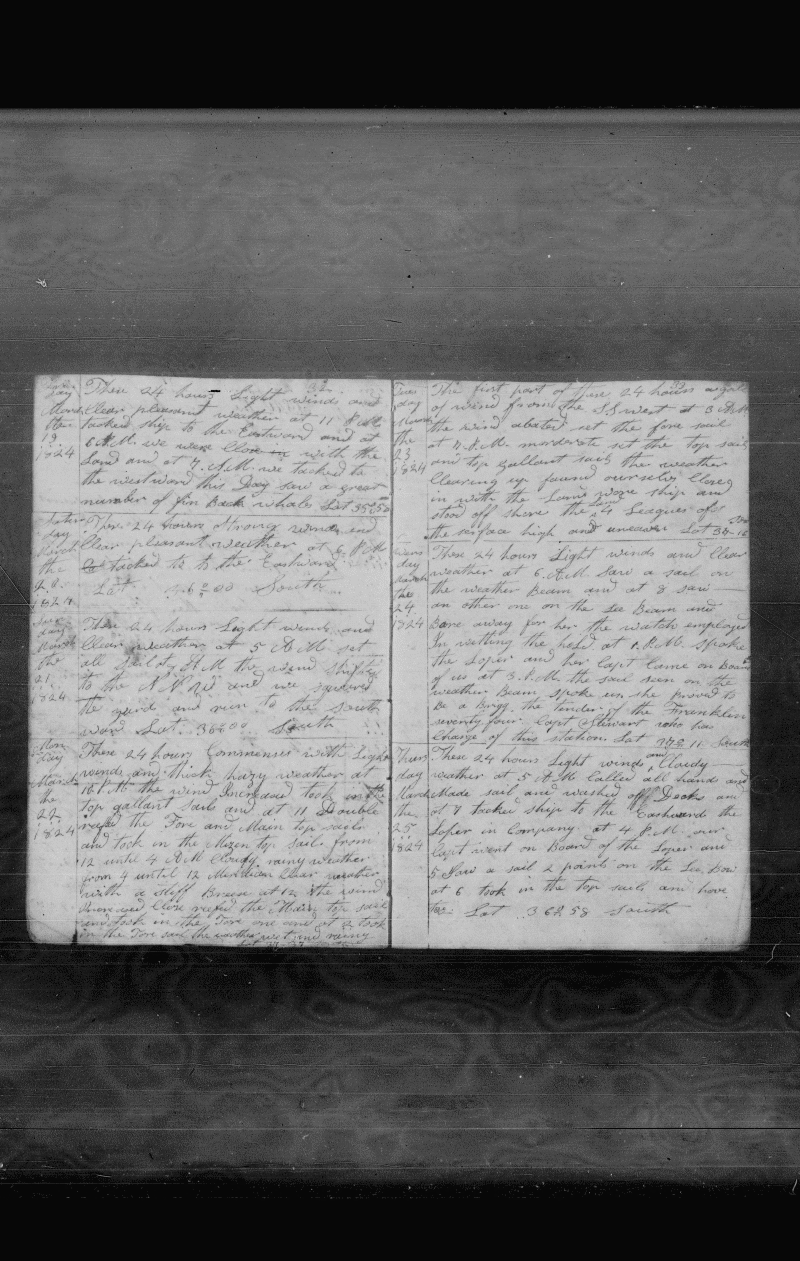 Friday
March
the
19
1824
These 24 hours Light winds and
Clear pleasant weather at 11 P.M.
tacked ship to the Eastward and at
6 A.M. we were Close in with the
Land and at 7. A.M. we tacked to
the westward this Day saw a great
number of fin Back whales Lat 35°50
Saturday
March
the
20
1824
These 24 hours strong winds and
Clear pleasant weather at 6 P.M
tacked to the Eastward
Lat 36°00 South
day
March
the
21
1824
These 24 hours Light winds and
Clear weather at 5 A.M. set
all sail at A.M the wind shifted
to the and we squared
the yard and run to the South
ward Lat. 36°00 South
Mon
day
March
the
22
1824
These 24 hours Commences with Light
winds and thick hazy weather at
10 P.M. the wind Increased took in the
top gallant sails and at 11 Double
reefed the Fore and Main top sails
and took in the Mizen top sail from
12 until 4 A.M Cloudy rainy weather
from 4 until 12 Meridian Clear weather
with a stiff Breeze at 12 the wind
Increased Close reefed the Main top sail
and took in the Fore one and at 2 took
in the Fore sail the weather wet and rainy
Tues
day
March
the
23
1824
The first part of these 24 hours a gale
of wind from the S.S.west at 3 A.M.
the wind abated set the fore sail
at 7. A.M. moderate set the top sails
and top gallant sails the weather
Clearing up found ourselves Close
in with the Land wore ship and
stood off shore the Land 4 Leagues off
the surface high and uneaven Lat
Wens
day
March
the
24
1824
These 24 hours Light winds and Clear
weather at 6. A.M Saw a sail on
the weather Beam and at 8 saw
an other one on the Lee Beam and
Bore away for her the watch employed
In wetting the hold at 1. P.M. spoke
the Loper and her Capt Came on Board
of us at 3. P.M the sail seen on the
weather Beam spoke us she proved to
Be a Brigg. the tender of the Franklin
seventy four. Capt Stewart who has
Charge of this station. Lat 37°11 South
Thurs
day
March
the
25
1824
These 24 hours Light winds and Cloudy
weather at 5 A.M Called all hands and
Made sail and washed off Decks and
at 7 tacked ship to the Eastward the
Loper in Company at 4 P.M. our
Capt went on Board of the Loper and
5 Saw a sail 2 points on the Lee Bow
at 6 took in the top sails and hove
too. Lat 36°58 South